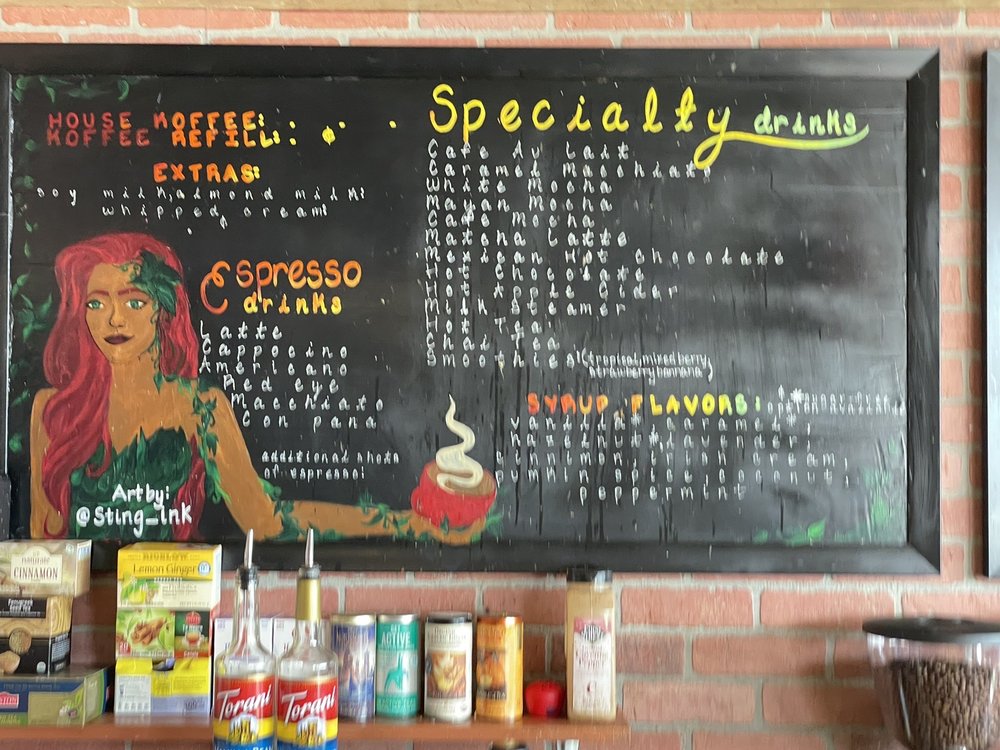 HOUSE KOFFEE:
KOFFEE REFILL:
EXTRAS:
soy milk, almond milk:
whipped cream:
Espresso
drinks
Latte
Cappocino
Americano
Red eye
Macchiato
Con pana
additional shots
of espresso:
Art by:
@Sting_ink
Specialty drinks
Cafe Au Lait
Caramel Macchiato
White Mocha
Mayan Mocha
Cafe Mocha
Matcha Latte
Mexican Hot chocolate
Hot Chocolate
Hot Apple Cider
Milk Steamer
Hot Tea
Chai Tea
Smoothies: (tropical, mixed berry,
strawberry bannana)
SYRUP FLAVORS: *sugar free
option available
vanilla* caramel*,
hazelnut* lavender,
irish cream,
pumpkin spice, coconut,
peppermint
naturale
CINNAMON
Fenugreek
Seed Tea
Lemon Ginger
20
100
Torani
Torani
ACTIVE